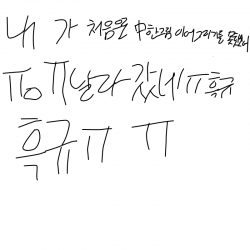 내가 처음으로 中한그림 이어그리기를 못했네
ㅠㅇㅠ날라갔네ㅠ흑규
흑규ㅠㅠ